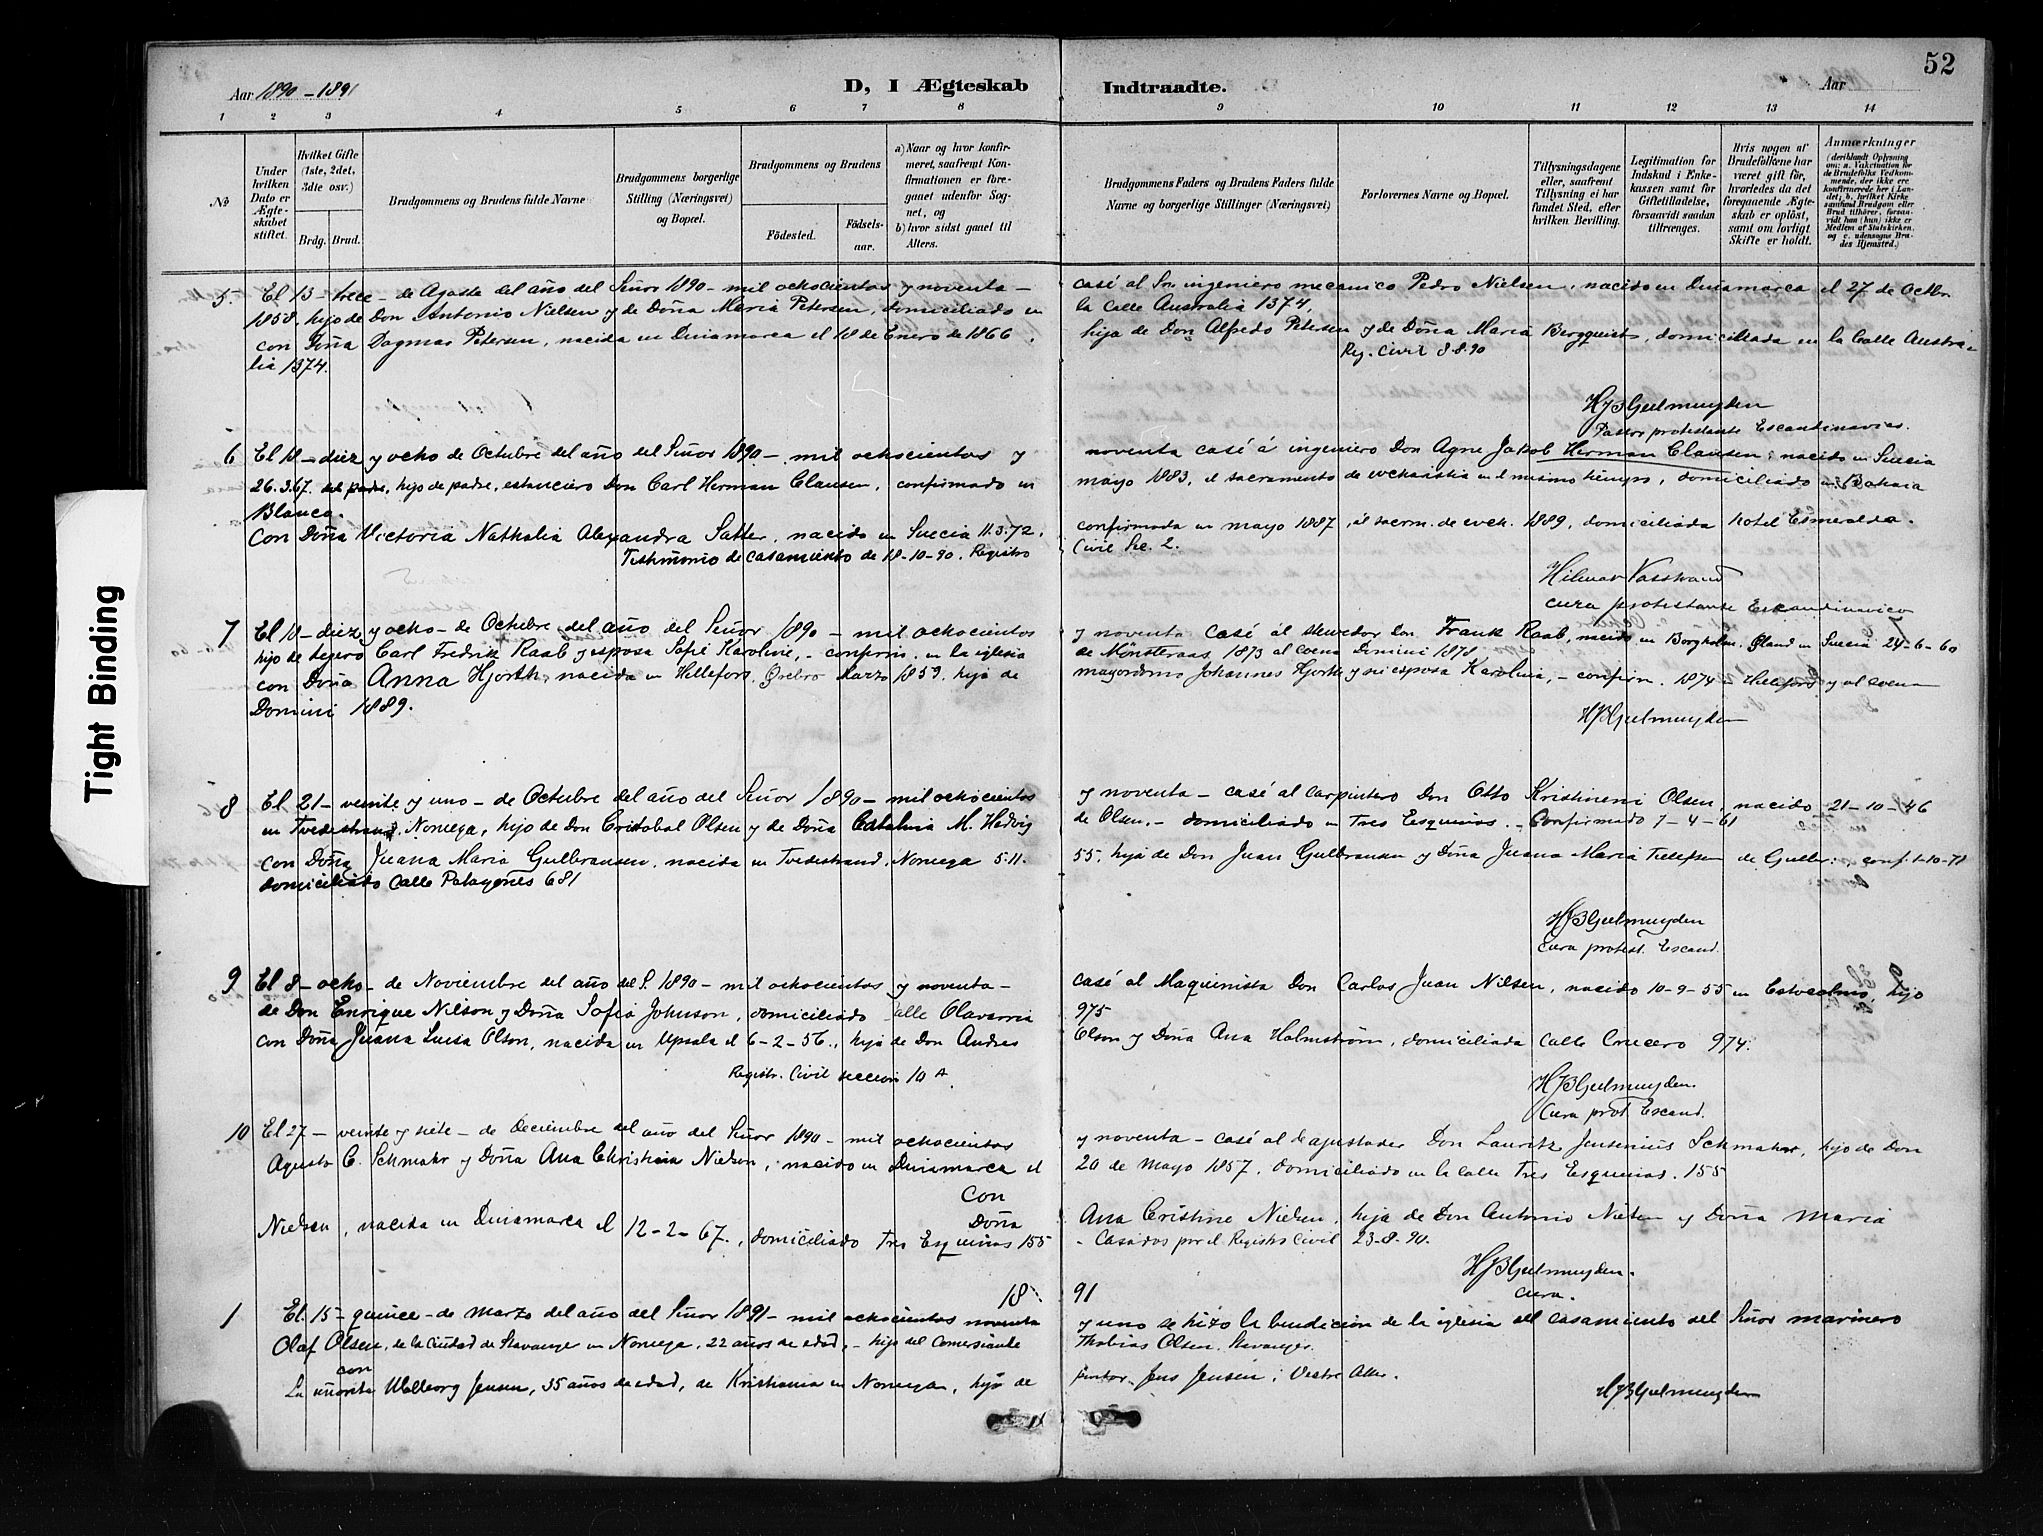 52
Aar 1890 - 1891 D, I Ægteskab Indtraadte. Aar
1 2 3 4 5 6 7 8 9 10 11 12 13 14
№
Under hvilken Dato er Ægteskabet stiftet.
Hvilket Gifte (1ste, 2det, 3die osv.)
Brdg. Brud.
Brudgommens og Brudens fulde Navne
Brudgommens borgerlige Stilling (Næringsvei) og Bopæl.
Brudgommens og Brudens
Födested. Födselsaar.
a) Naar og hvor konfirmeret, saafremt Konfirmationen er foregaaet udenfor Sognet, og
b) hvor sidst gaaet til Alters.
Brudgommens Faders og Brudens Faders fulde Navne og borgerlige Stillinger (Næringsvei)
Forlovernes Navne og Bopæl.
Tillysningsdagene eller, saafremt Tillysning ei har fundet Sted, efter hvilken Bevilling.
Legitimation for Indskud i Enkekassen samt for Giftetilladelse, forsaavidt saadan tiltrænges.
Hvis nogen af Brudefolkene har været gift för, hvorledes da det foregaaende Ægteskab er oplöst, samt om lovligt Skifte er holdt.
Anmærkninger
(deriblandt Oplysning om: a. Vakcination for de Brudefolks Vedkommende, der ikke ere konfirmerede her i Landet; b. hvilket Kirkesamfund Brudgom eller Brud tilhörer, forsaavidt han (hun) ikke er Medlem af Statskirken, og c. udensogns Brudes Hjemsted.)
5. El 13 - trece - de Agosto del año del Señor 1890 - mil ochocientos y noventa - casé al Sr. ingeniero mecanico Pedro Nielsen, nacido en Dinamarca el 27 de Octbr.
1858, hijo de Don Antonio Nielsen y de Doña Maria Petersen, domiciliado en la Calle Australia 1374,
con Doña Dagmar Petersen, nacida en Dinamarca el 18 de Enero de 1866, hija de Don Alfredo Petersen y de Doña Maria Bergquist, domiciliada en la Calle Austra-
lia 1374. Reg. Civil 8.8.90
HJBGuelmuyden
Pastor protestante Escandinavico.
6 El 18 - diez y ocho de Octubre del año del Señor 1890 - mil ochocientos y noventa casé á ingeniero Don Agne Jakob Herman Clausen, nacido en Suecia
26.3.67. hijo de padre, estanciero Don Carl Herman Clausen, confirmado en mayo 1883, el sacramento de eukaristia en el mismo tiempo, domiciliado en Bahia
Blanca.
Con Doña Victoria Nathalia Alexandra Satter, nacido en Suecia 11.3.72, confirmada en mayo 1887, al sacrm. de euch. 1889, domiciliada hotel Esmeralda.
Testimonio de casamiento de 18-10-90. Registro Civil Sec. 2.
Hilmar Vasstrand
cura protestante Escandinavico
7 El 18 - diez y ocho - de Octubre del año del Señor 1890 - mil ochocientos y noventa casé al stewedor Don Frank Raab, nacido en Borgholm, Øland en Suecia 24-6-60
hijo de tejero Carl Fredrik Raab y esposa Sofi Karoline, - confirm. en la iglesia de Mönsteraas 1873 al coena Domini 1878
con Doña Anna Hjorth, nacida en Hellefors, Ørebro Marzo 1859. hija de mayordomo Johannes Hjorth y su esposa Karolina, - confirm. 1874 en Hellefors y al coena
Domini 1889.
HJBGuelmuyden
8 El 21 - veinte y uno - de Octubre del año del Señor 1890 - mil ochocientos y noventa - casé al carpintero Don Otto Kristineni Olsen, nacido 21-10-46
en Tvedestrand, Noruega, hijo de Don Cristobal Olsen y de Doña Catalina M. Hedvig de Olsen. - domiciliado en Tres Esquinas. - Confirmado 7-4-61
Con Doña Juana Maria Gulbransen, nacida en Tvedestrand, Noruega 5.11. 55, hija de Don Juan Gulbransen y Doña Juana Maria Tellefsen de Gulbr., conf. 1-10-71
domiciliado Calle Patagones 681
HJBGuelmuyden
Cura protest. Escand.
9 El 8 - ocho - de Noviembre del año del S. 1890 - mil ochocientos y noventa - casé al Maquinista Don Carlos Juan Nilsen, nacido 10-9-55 en Estocolmo, hijo
de Don Enrique Nilson y Doña Sofia Johnson, domiciliado calle Olavarria 975
con Doña Juana Luisa Olson, nacida en Upsala el 6-2-56, hija de Don Andres Olson y Doña Ana Holmström, domiciliada Calle Crucero 974.
Registr. Civil seccion 10 A.
HJBGuelmuyden.
Cura prot. Escand.
10 El 27 - veinte y siete - de Deciembre del año del Señor 1890 - mil ochocientos y noventa - casé al de ajustador Don Lauritz Jensenius Schmahr, hijo de Don
Agusto C. Schmahr y Doña Ana Christina Nielsen, nacido en Dinamarca el 20 de Mayo 1857, domiciliado en la calle Tres Esquinas. 155
Con Doña Ana Cristine Nielsen, hija de Don Antonio Nielsen y Doña Maria
Nielsen, nacida en Dinamarca el 12-2-67, domiciliado Tres Esquinas 155 - Casados por el Registro Civil 23-8-90.
HJBGuelmuyden.
cura.
1891
1 El 15 - quince - de Marzo del año del Señor 1891 - mil ochocientos noventa y uno se hizo la bendicion de la iglesia del casamiento del Señor marinero
Olaf Olsen, de la ciudad de Stavanger en Noruega, 22 años de edad, - hijo del Comersiante Thobias Olsen, Stavanger.
con
La señorita Walborg Jensen, 35 años de edad, de Kristiania en Noruega, hija de pintor Jens Jensen, Vestre Aker.
HJBGuelmuyden
Tight Binding